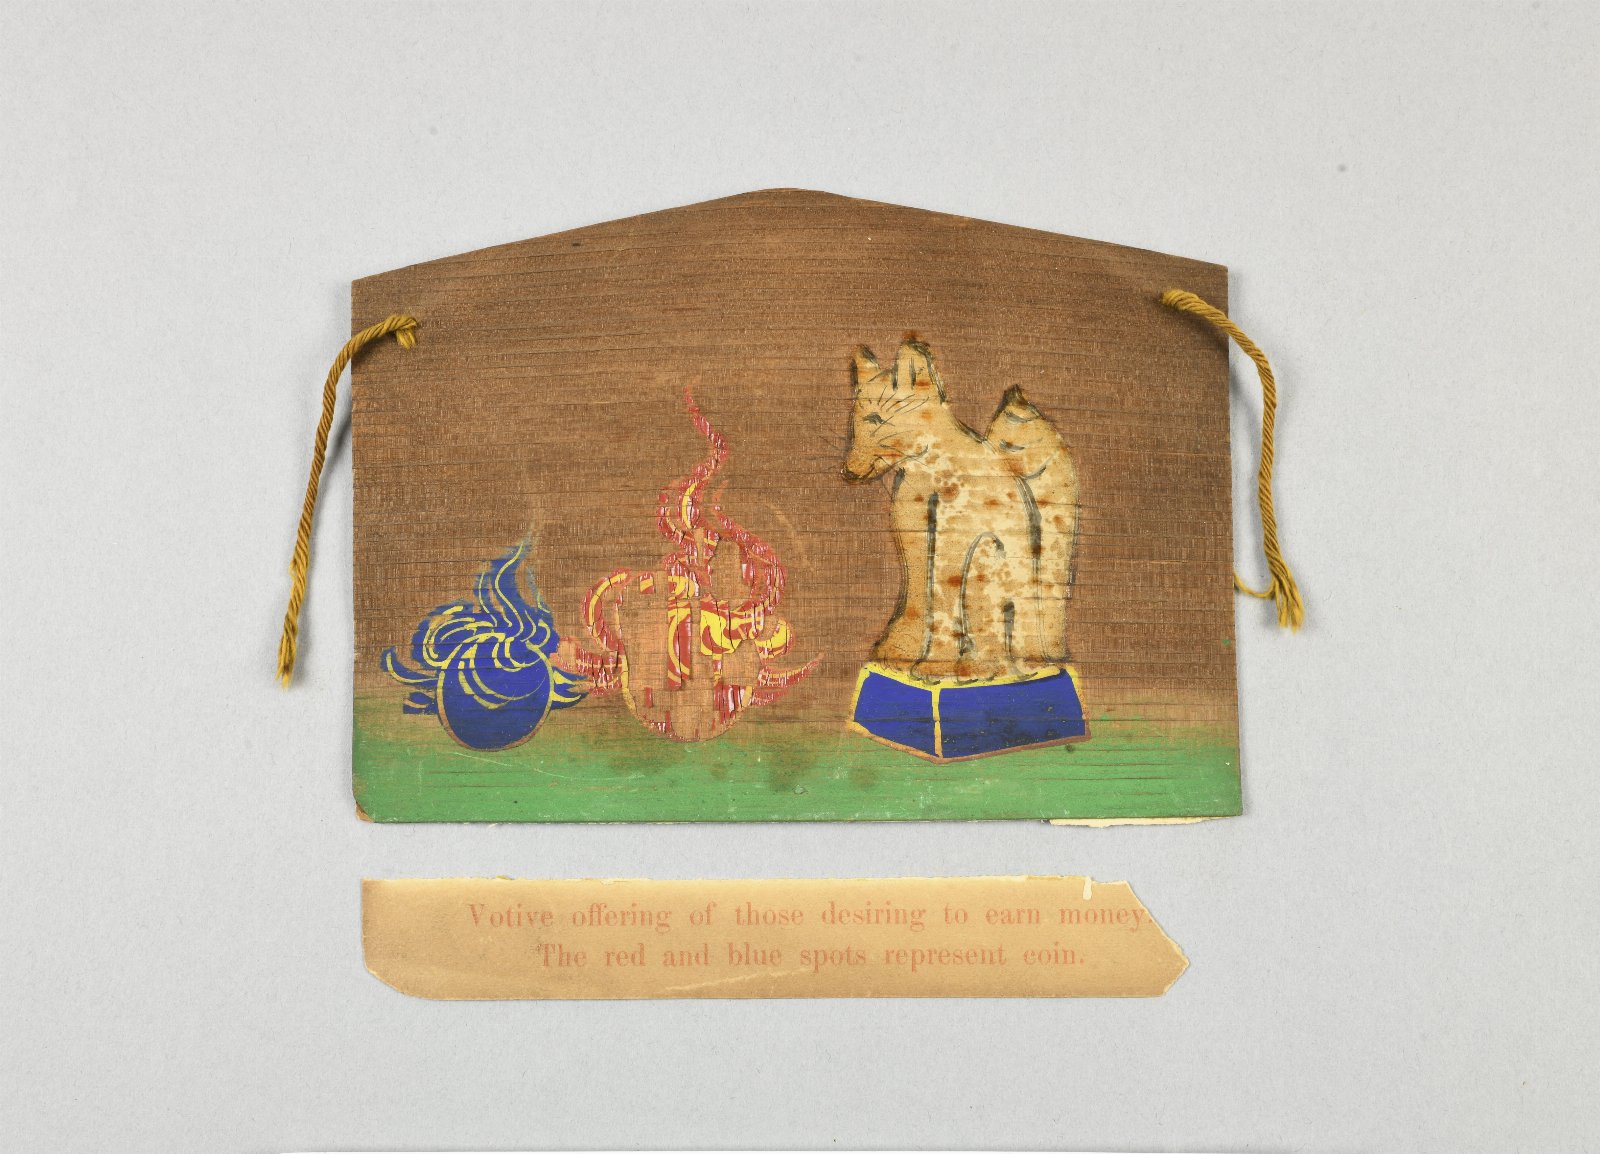 Votive offering of those desiring to earn money.
The red and blue spots represent coin.